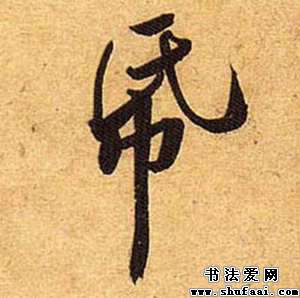 帋
书法爱网
www.shufaai.com